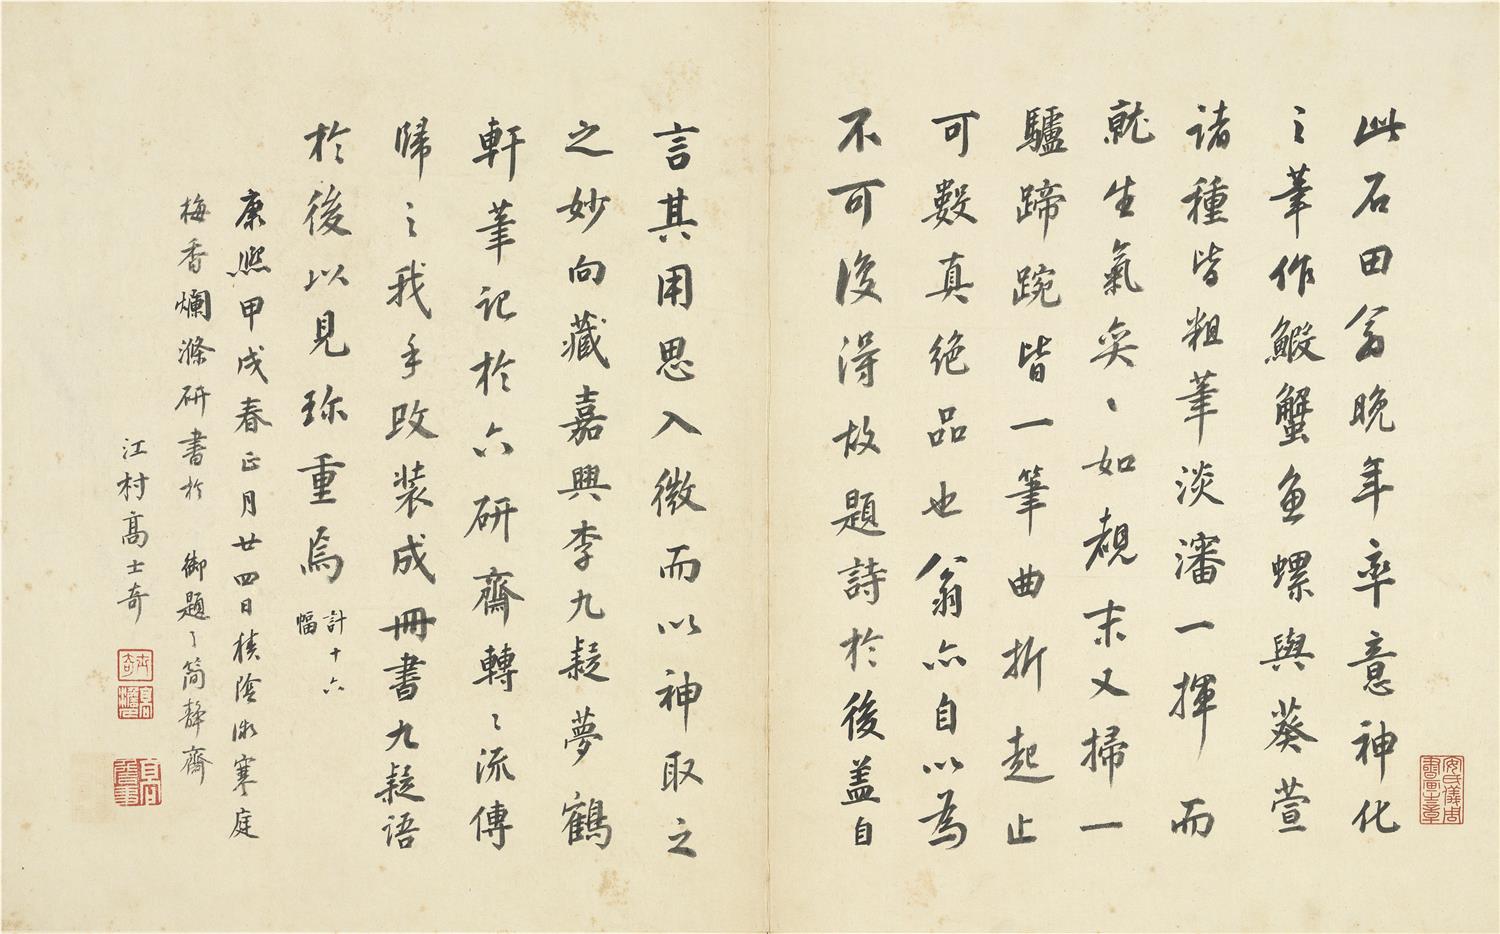 此石田翁晚年率意神化
之筆作鰕蟹魚螺與葵萱
諸種皆粗筆淡瀋一揮而
就生氣奕〻如覩末又掃一
驢蹄踠皆一筆曲折起止
可數真絕品也翁亦自以為
不可復得故題詩於後盖自
言其用思入微而以神取之
之妙向藏嘉興李九疑夢鶴
軒筆記於六研齋轉〻流傳
歸之我手改装成冊書九疑語
於後以見珎重焉 計十六
幅
康熙甲戌春正月廿四日積陰微寒庭
梅香爛滌研書於 御題之簡靜齋
江村高士奇
士奇
安氏儀周書畫之章